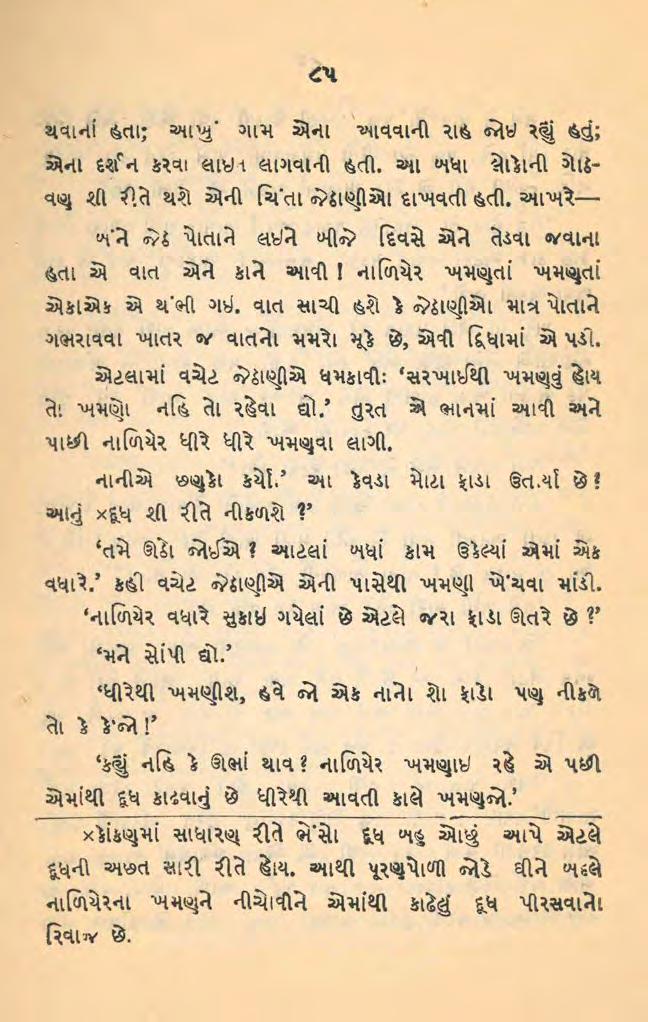 ૮૫
થવાનાં હતા; આખું ગામ એના આવવાની રાહ જોઇ રહ્યું હતું;
એના દર્શન કરવા લાઇન લાગવાની હતી. આ બધા લોકોની ગોઠ-
વણ શી રીતે થશે એની ચિંતા જેઠાણીઓ દાખવતી હતી. આખરે—
બંને જેઠ પોતાને લઇને બીજે દિવસે એને તેડવા જવાના
હતા એ વાત એને કાને આવી ! નાળિયેર ખમણતાં ખમણતાં
એકાએક એ થંભી ગઇ. વાત સાચી હશે કે જેઠાણીઓ માત્ર પોતાને
ગભરાવવા ખાતર જ વાતનો મમરો મૂકે છે, એવી દ્વિધામાં એ પડી.
એટલામાં વચેટ જેઠાણીએ ધમકાવીઃ ‘સરખાઈથી ખમણવું હોય
તો ખમણો નહિ તો રહેવા દ્યો.’ તુરત એ ભાનમાં આવી અને
પાછી નાળિયેર ધીરે ધીરે ખમણવા લાગી.
નાનીએ છણકો કર્યો.’ આ કેવડા મોટા ફાડા ઉતર્યા છે ?
આનું ×દૂધ શી રીતે નીકળશે ?’
‘તમે ઊઠો જોઈએ ? આટલાં બધાં કામ ઉકેલ્યાં એમાં એક
વધારે.’ કહી વચેટ જેઠાણીએ એની પાસેથી ખમણી ખેંચવા માંડી.
‘નાળિયેર વધારે સુકાઇ ગયેલાં છે એટલે જરા ફાડા ઊતરે છે ?’
‘મને સોંપી દ્યો.’
‘ધીરેથી ખમણીશ, હવે જો એક નાનો શો ફાડો પણ નીકળે
તો કે કે’જો !’
‘કહ્યું નહિ કે ઊભાં થાવ ? નાળિયેર ખમણાઇ રહે એ પછી
એમાંથી દૂધ કાઢવાનું છે ધીરેથી આવતી કાલે ખમણજો.’
×કોંકણમાં સાધારણ રીતે ભેંસો દૂધ બહુ ઓછું આપે એટલે
દૂધની અછત સારી રીતે હોય. આથી પૂરણપોળી જોડે ઘીને બદલે
નાળિયેરના ખમણને નીચોવીને એમાંથી કાઢેલું દૂધ પીરસવાનો
રિવાજ છે.